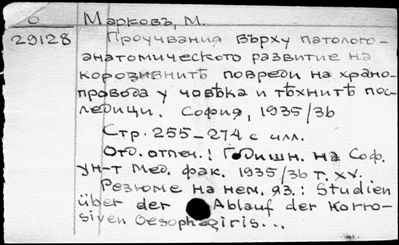 О Марковъ, М.
29128 Проучвания върху патолого-
анатомическото развитие на
корозивнитѣ повреди на храно-
провода у човѣка и тѣхнитѣ пос-
ледици. София, 1935/36
Стр. 255-274 с илл.
Отд. отпеч.: Годишн. на Соф.
ун-т Мед. фак. 1935/36 т. XV.
Резюме на нем. яз.: Studien
über der Ablauf der Korro-
siven Oesophagiris...